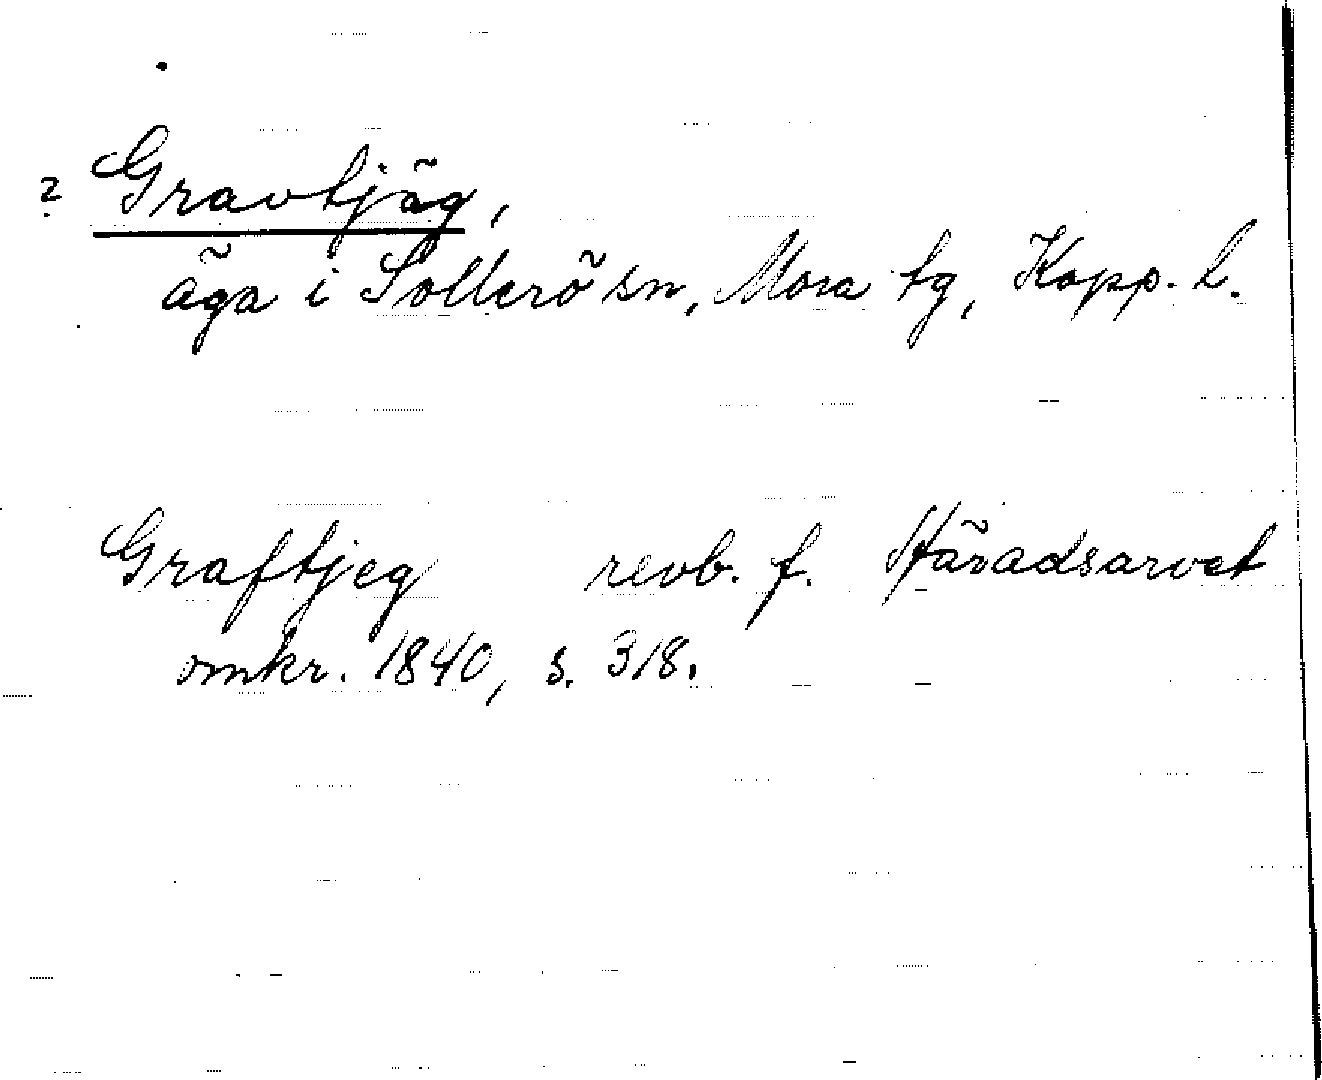 ? Gravtjäg,
äga i Sollerö sn, Mora tg, Kopp. l.
Graftjeg revb. f. Häradsarvet
omkr. 1840, s. 318.